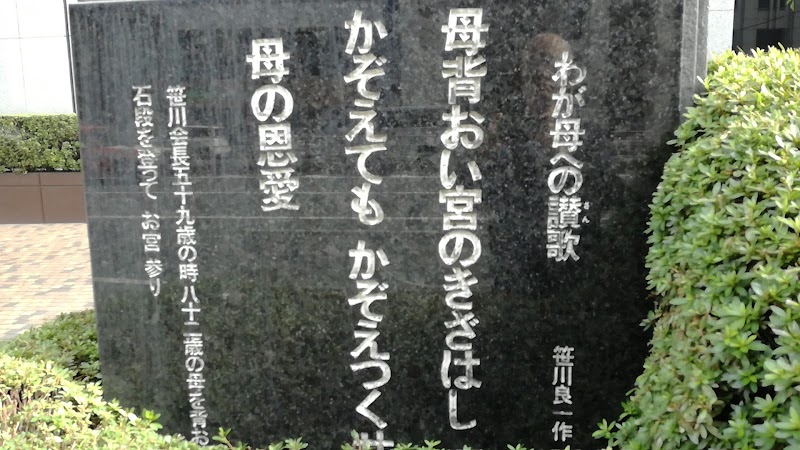 わが母への讃歌
さん
笹川良一作
母背おい宮のきざはし
かぞえても かぞえつく
母の恩愛
笹川会長五十九歳の時八十二歳の母を背お
石段を登って お宮参り